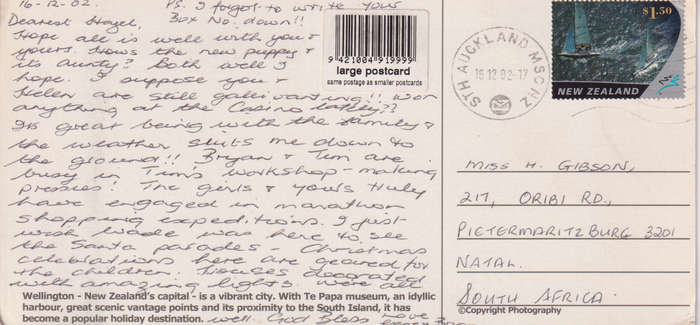 16-12-02. PS. I forgot to write your
Box No. down!!
Dearest Hazel,
Hope all is well with you &
yours. Hows the new puppy &
its aunty? Both well I
hope. I suppose you &
Helen are still gallivanting!! Won
anything at the Casino lately??
Its great being with the family &
the weather suits me down to
the ground!! Bryan & Tim are
busy in Tim's workshop - making
pressies! The girls & yours truly
have engaged in marathon
shopping expeditions. I just
wish Wade was here to see
the Santa parades - Christmas
celebrations here are geared for
the children. Houses decorated
with amazing lights. We're all
well. God Bless Love
9 421004 919999
large postcard
same postage as smaller postcards
STH AUCKLAND MSC NZ
16 12 02-17
$1.50
NEW ZEALAND
MISS H. GIBSON,
217, ORIBI RD.,
PIETERMARITZBURG 3201
NATAL.
SOUTH AFRICA.
©Copyright Photography
Wellington - New Zealand's capital - is a vibrant city. With Te Papa museum, an idyllic
harbour, great scenic vantage points and its proximity to the South Island, it has
become a popular holiday destination.